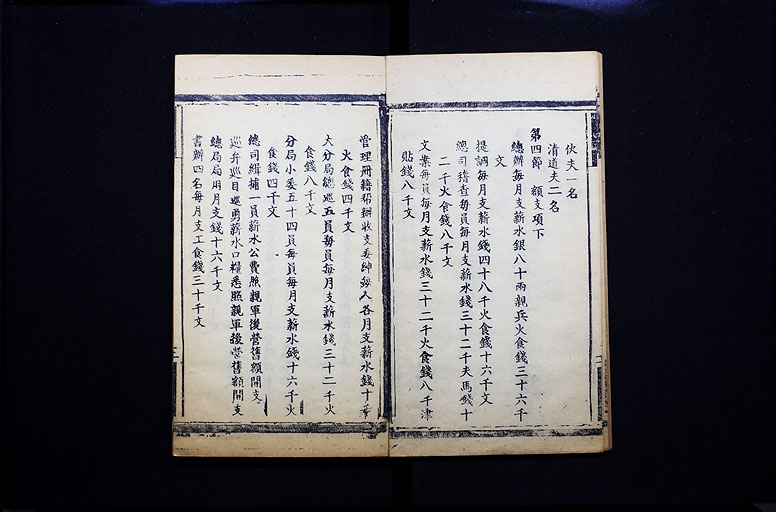 伙夫一名
清道夫二名
第四節　額支項下
總辦每月支薪水銀八十兩親兵火食錢三十六千
文
提調每月支薪水錢四十八千火食錢十六千文
總司稽查每員每月支薪水錢三十二千夫馬錢十
二千火食錢八千文
文案每員每月支薪水錢三十二千火食錢八千津
貼錢八千文
管理冊籍幫辦收支委紳每人各月支薪水錢十千
火食錢四千文
大分局總巡五員每員每月支薪水錢三十二千火
食錢八千文
分局小委五十四員每員每月支薪水錢十六千火
食錢四千文
總司緝捕一員薪水公費照親軍後營舊額開支
巡弁巡目巡勇薪水口糧悉照親軍後營舊額開支
總局局用月支錢十六千文
書辦四名每月支工食錢三十千文